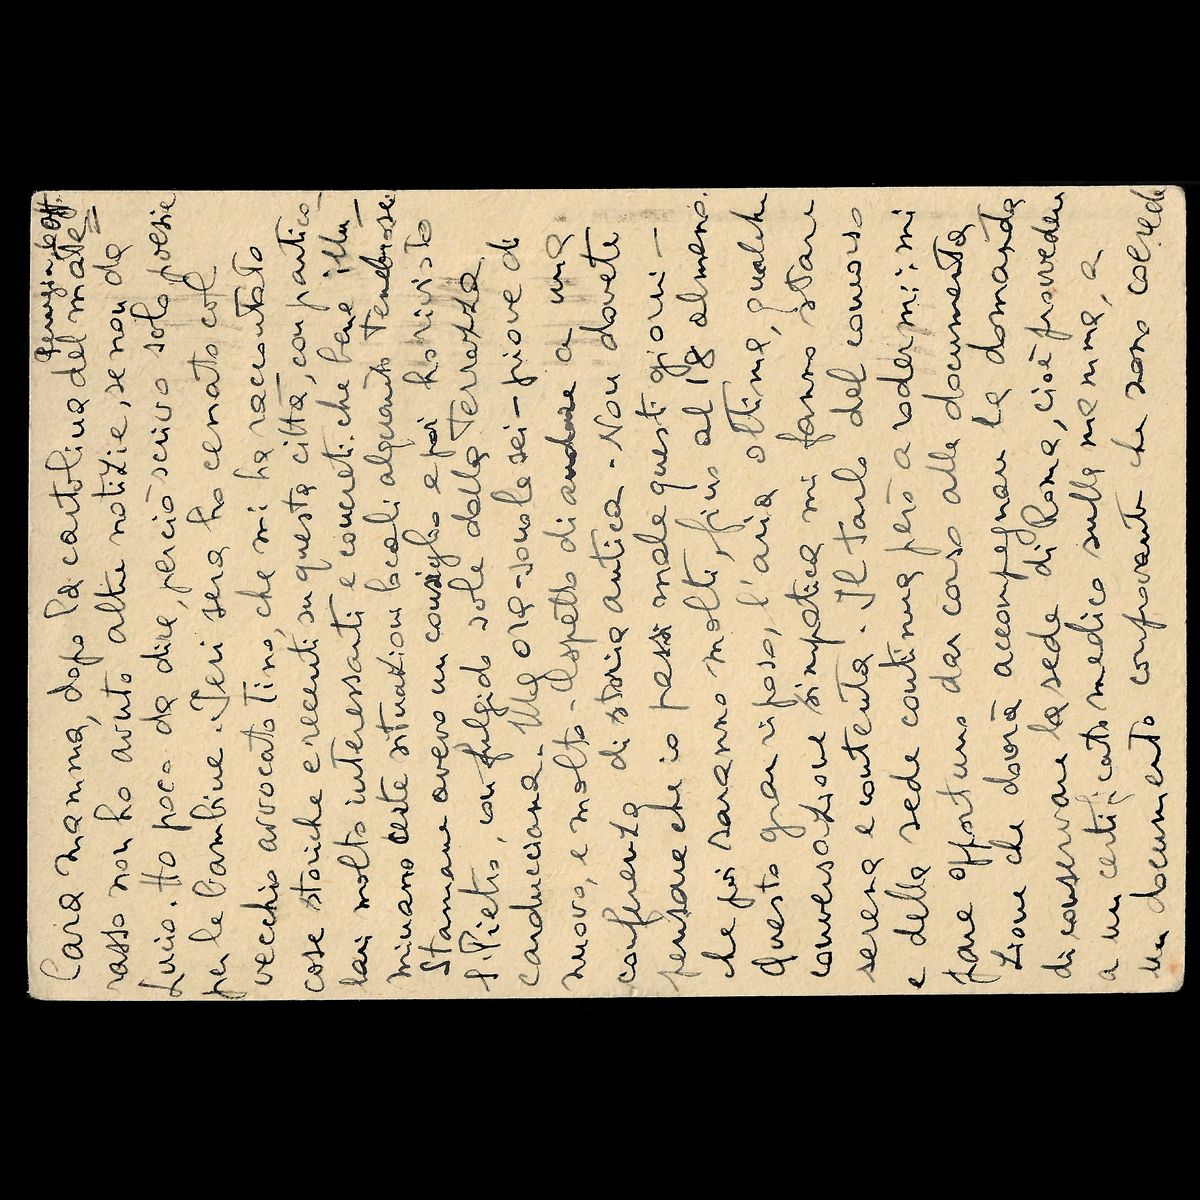 Perugia 6 ag.
Cara mamma, dopo la cartolina del mate-
rasso non ho avuto altre notizie, se non da
Lucio. Ho poco da dire, perciò scrivo solo poesie
per le bambine. Ieri sera ho cenato col
vecchio avvocato Tino, che mi ha raccontato
cose storiche e recenti su questa città, con partico-
lari molto interessanti e concreti che bene illu-
minano certe situazioni locali alquanto tenebrose.
Stamane avevo un consiglio e poi ho rivisto
S. Pietro, con fulgido sole dalla terrazza
carducciana. Ma ora - sono le sei - piove di
nuovo, e molto. Aspetto di andare a una
conferenza di storia antica. Non dovete
pensare che io pessi male questi giorni -
che poi saranno molti, fino al 18 almeno.
Questo gran riposo, l'aria ottima, qualche
conversazione simpatica mi fanno stare
serena e contenta. Il tarlo del concorso
e della sede continua però a rodermi: mi
pare opportuno dar corso alla documenta-
zione che dovrà accompagnare la domanda
di conservare la sede di Roma, cioè provvedere
a un certificato medico sulla mamma, a
un documento comprovante che sono coerede